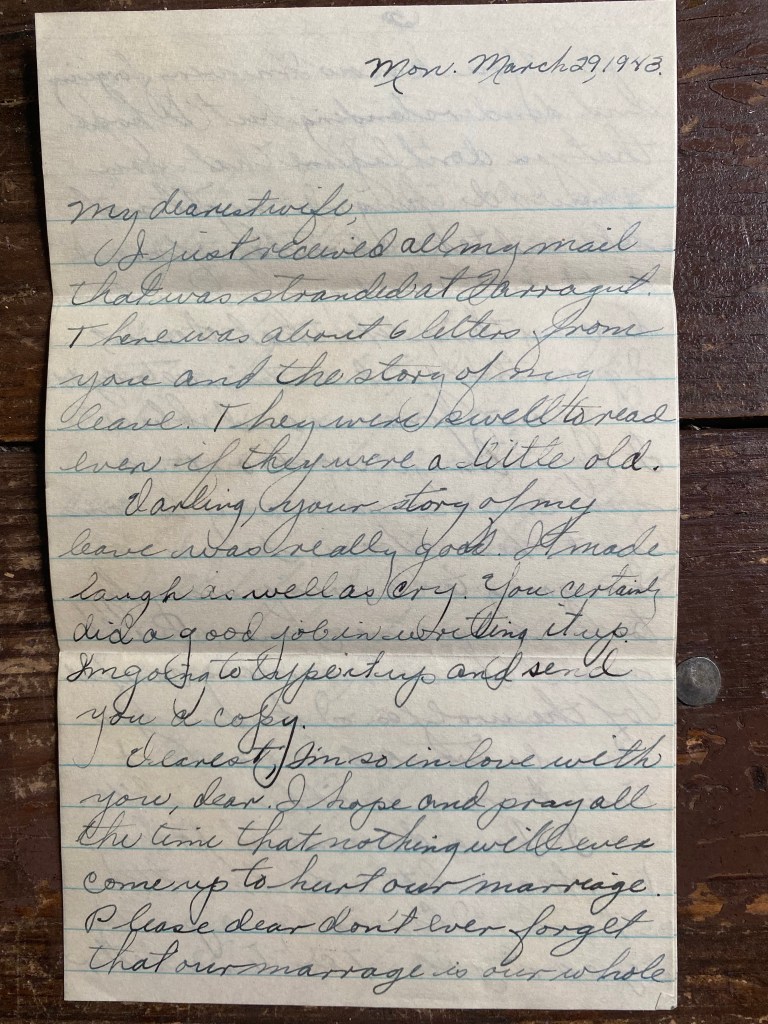 Mon. March 29, 1943.
My dearest wife,
I just received all my mail
that was stranded at Farragut.
There was about 6 letters from
you and the story of my
leave. They were swell to read
even if they were a little old.
Darling, your story of my
leave was really good. It made
laugh as well as cry. You certainly
did a good job in writing it up.
I'm going to type it up and send
you a copy.
Dearest, I'm so in love with
you, dear. I hope and pray all
the time that nothing will ever
come up to hurt our marriage.
Please dear don't ever forget
that our marrage is our whole